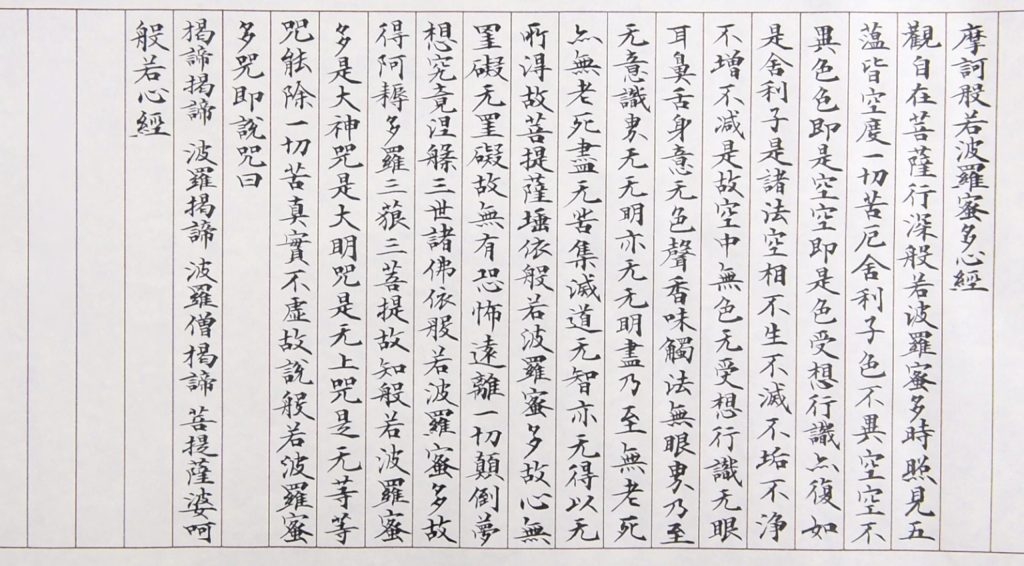 摩訶般若波羅蜜多心經
觀自在菩薩行深般若波羅蜜多時照見五
薀皆空度一切苦厄舍利子色不異空空不
異色色即是空空即是色受想行識亦復如
是舍利子是諸法空相不生不滅不垢不浄
不增不減是故空中無色无受想行識无眼
耳鼻舌身意无色聲香味觸法無眼界乃至
无意識界无无明亦无无明盡乃至無老死
亦無老死盡无苦集滅道无智亦无得以无
所淂故菩提薩埵依般若波羅蜜多故心無
罣礙无罣礙故無有恐怖遠離一切顛倒夢
想究竟涅槃三世諸佛依般若波羅蜜多故
得阿耨多羅三藐三菩提故知般若波羅蜜
多是大神咒是大明咒是无上咒是无等等
咒能除一切苦真實不虛故說般若波羅蜜
多咒即說咒曰
揭諦揭諦 波羅揭諦 波羅僧揭諦 菩提薩婆呵
般若心經